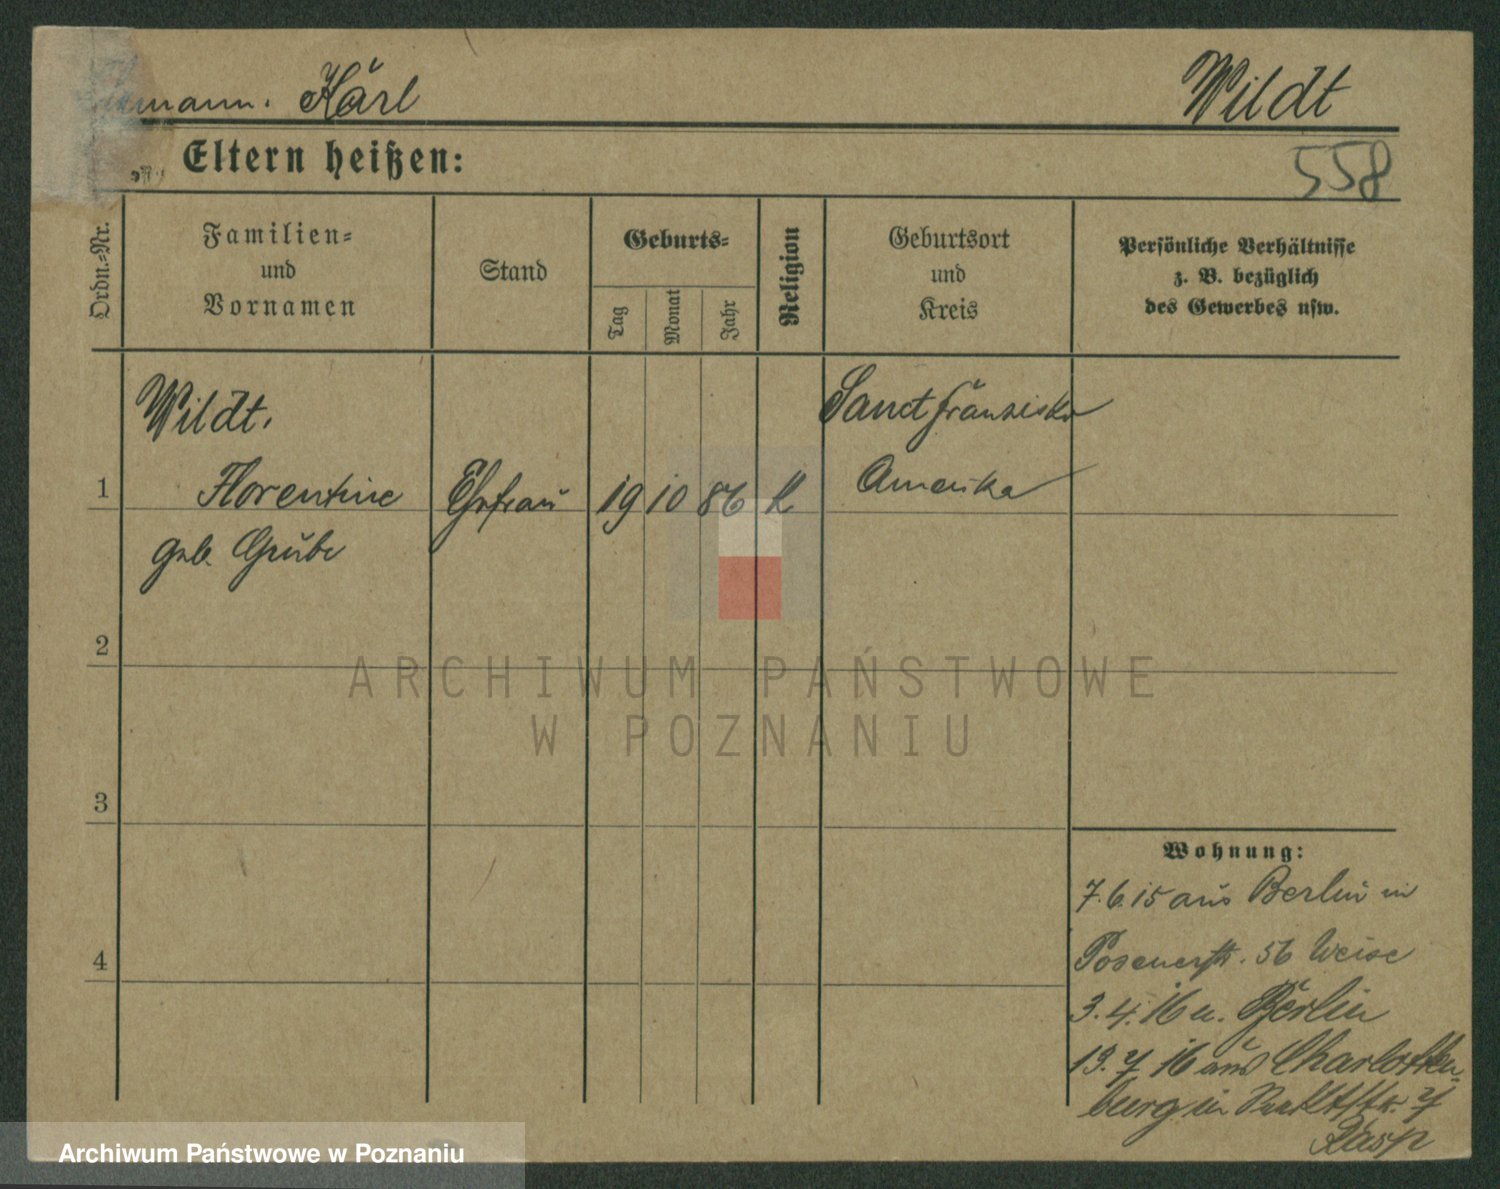 Karl Wildt
558
Eltern heißen:
Ordn.-Nr.
Familien-
und
Vornamen
Stand
Geburts-
Tag
Monat
Jahr
Religion
Geburtsort
und
Kreis
Persönliche Verhältnisse
z. B. bezüglich
des Gewerbes usw.
Wildt.
1 Florentine Ehefrau 19 10 86 K
geb. Grube
Sanct Franzisko
Amerika
2
3
4
Wohnung:
7.6.15 aus Berlin in
Posenerstr. 56 Weise
3.4.16 n. Berlin
19.7.16 aus Charlotten-
burg in 7
Rasp
ARCHIWUM PAŃSTWOWE
W POZNANIU
Archiwum Państwowe w Poznaniu